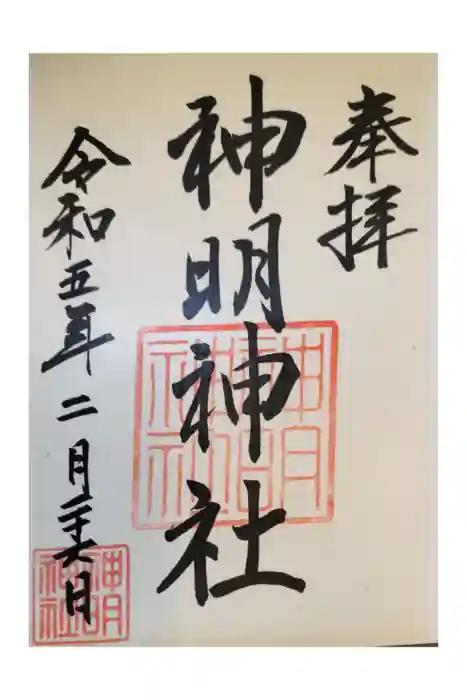 奉拝
神明神社
令和五年二月二十六日
神明神社
神明神社